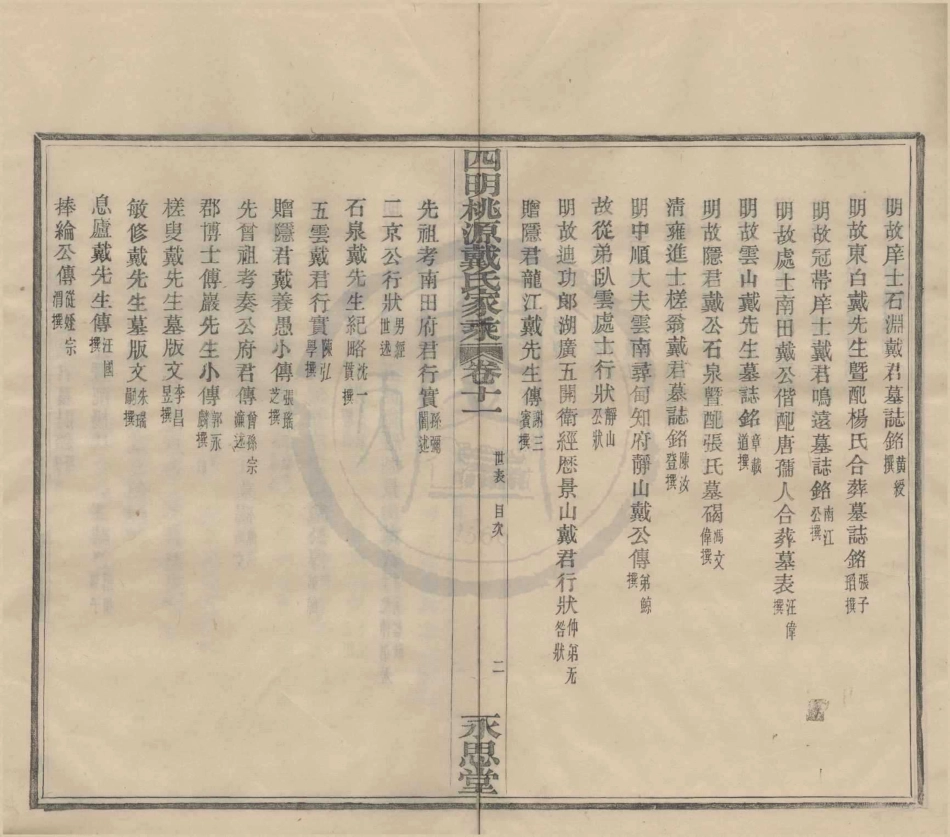 明故庠士石淵戴君墓誌銘黃綬撰
明故東白戴先生暨配楊氏合葬墓誌銘張子瑫撰
明故冠帶庠士戴君鳴遠墓誌銘南江公撰
明故處士南田戴公偕配唐孺人合葬墓表汪偉撰
明故雲山戴先生墓誌銘章載道撰
明故隱君戴公石泉暨配張氏墓碣馮文偉撰
清雍進士槎翁戴君墓誌銘陳汝登撰
明中順大夫雲南尋甸知府靜山戴公傳弟鯨撰
故從弟臥雲處士行狀靜山公狀
明故迪功郎湖廣五開衛經歷景山戴君行狀仲弟无咎狀
贈隱君龍江戴先生傳謝三賓撰
四明桃源戴氏家乘 卷十一 世表 目次 二 永思堂
先祖考南田府君行實孫彌闓述
二京公行狀男經世述
石泉戴先生紀略沈一貫撰
五雲戴君行實陳弘學撰
贈隱君戴養愚小傳張瑤芝撰
先曾祖考奏公府君傳曾孫宗瀛述
郡博士傳巖先生小傳郭永麟撰
槎叟戴先生墓版文李昌昱撰
敏修戴先生墓版文朱瑞嗣撰
息廬戴先生傳汪國撰
捧綸公傳從姪宗渭撰